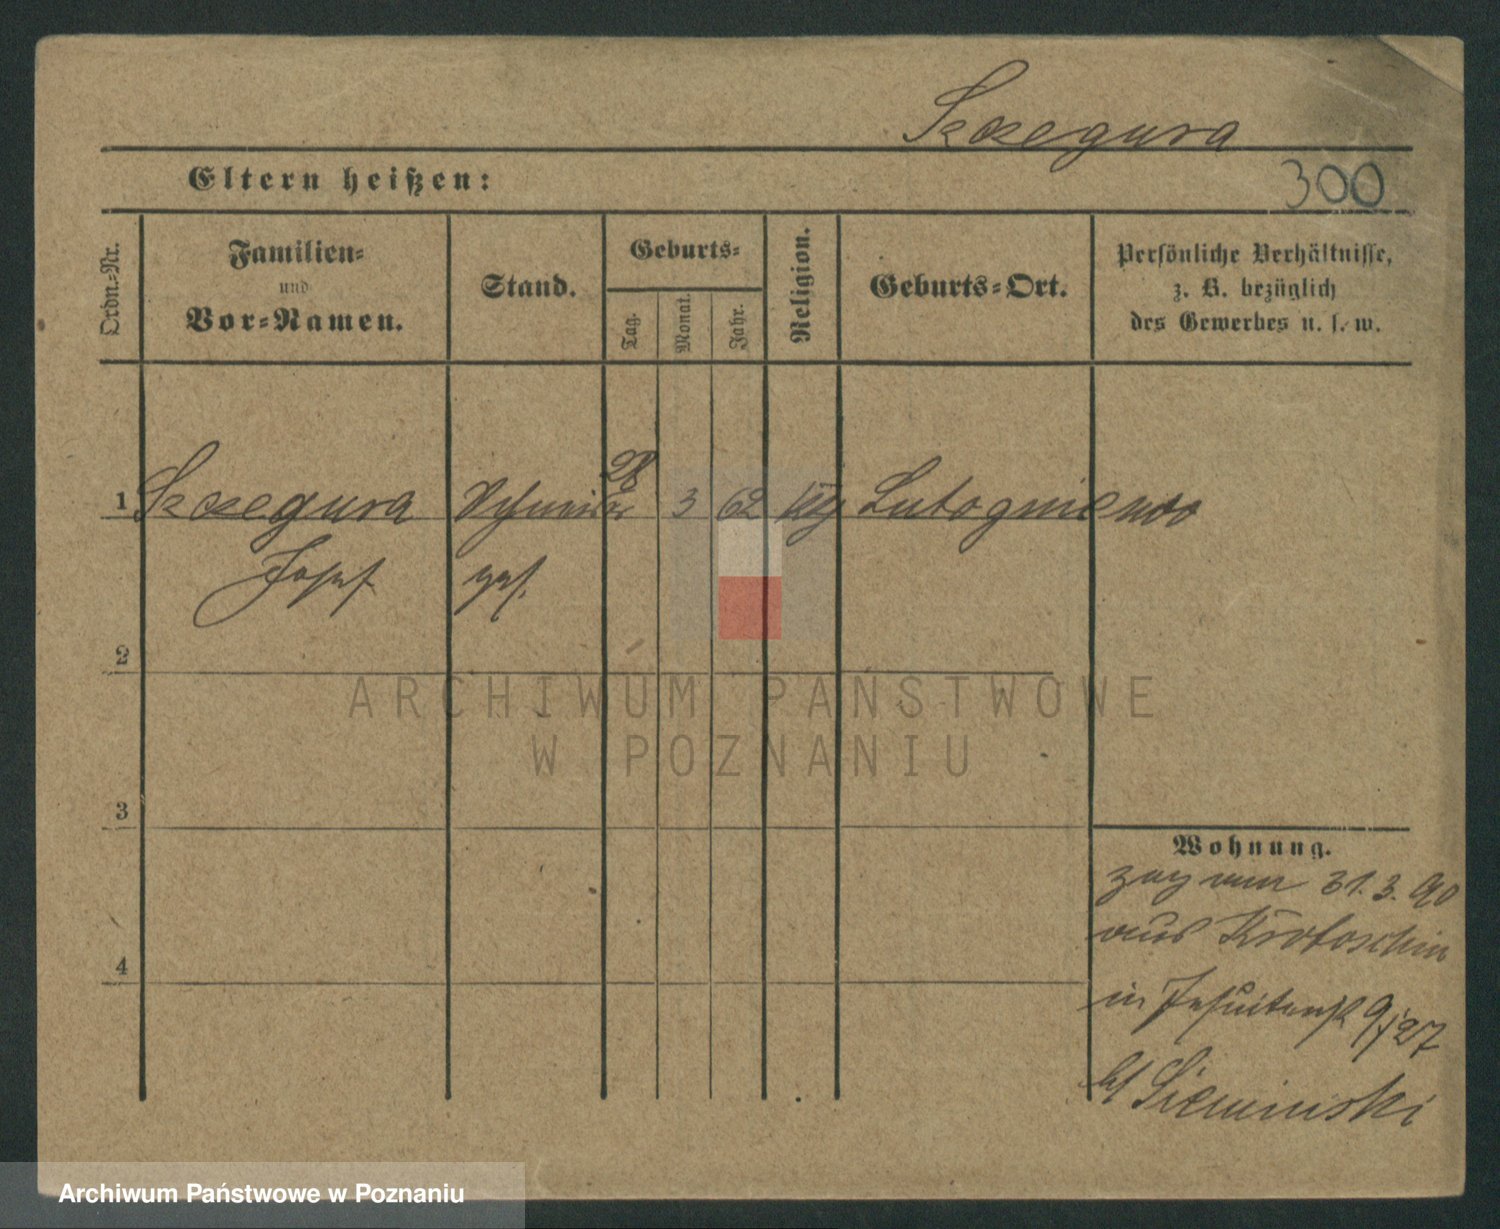 Szczegura
Eltern heißen:
300
Ordn.-Nr.
Familien-
und
Vor-Namen.
Stand.
Geburts-
Tag.
Monat.
Jahr.
Religion.
Geburts-Ort.
Persönliche Verhältnisse,
z. B. bezüglich
des Gewerbes u. s. w.
28
1 Szczegura Schneider 3 62 ktg Lutogniewo
Josef ges.
2
ARCHIWUM PAŃSTWOWE
W POZNANIU
3
Wohnung.
zog am 31.3.90
aus Krotoschin
in Jesuitenst 9/
4
Sieminski
Archiwum Państwowe w Poznaniu